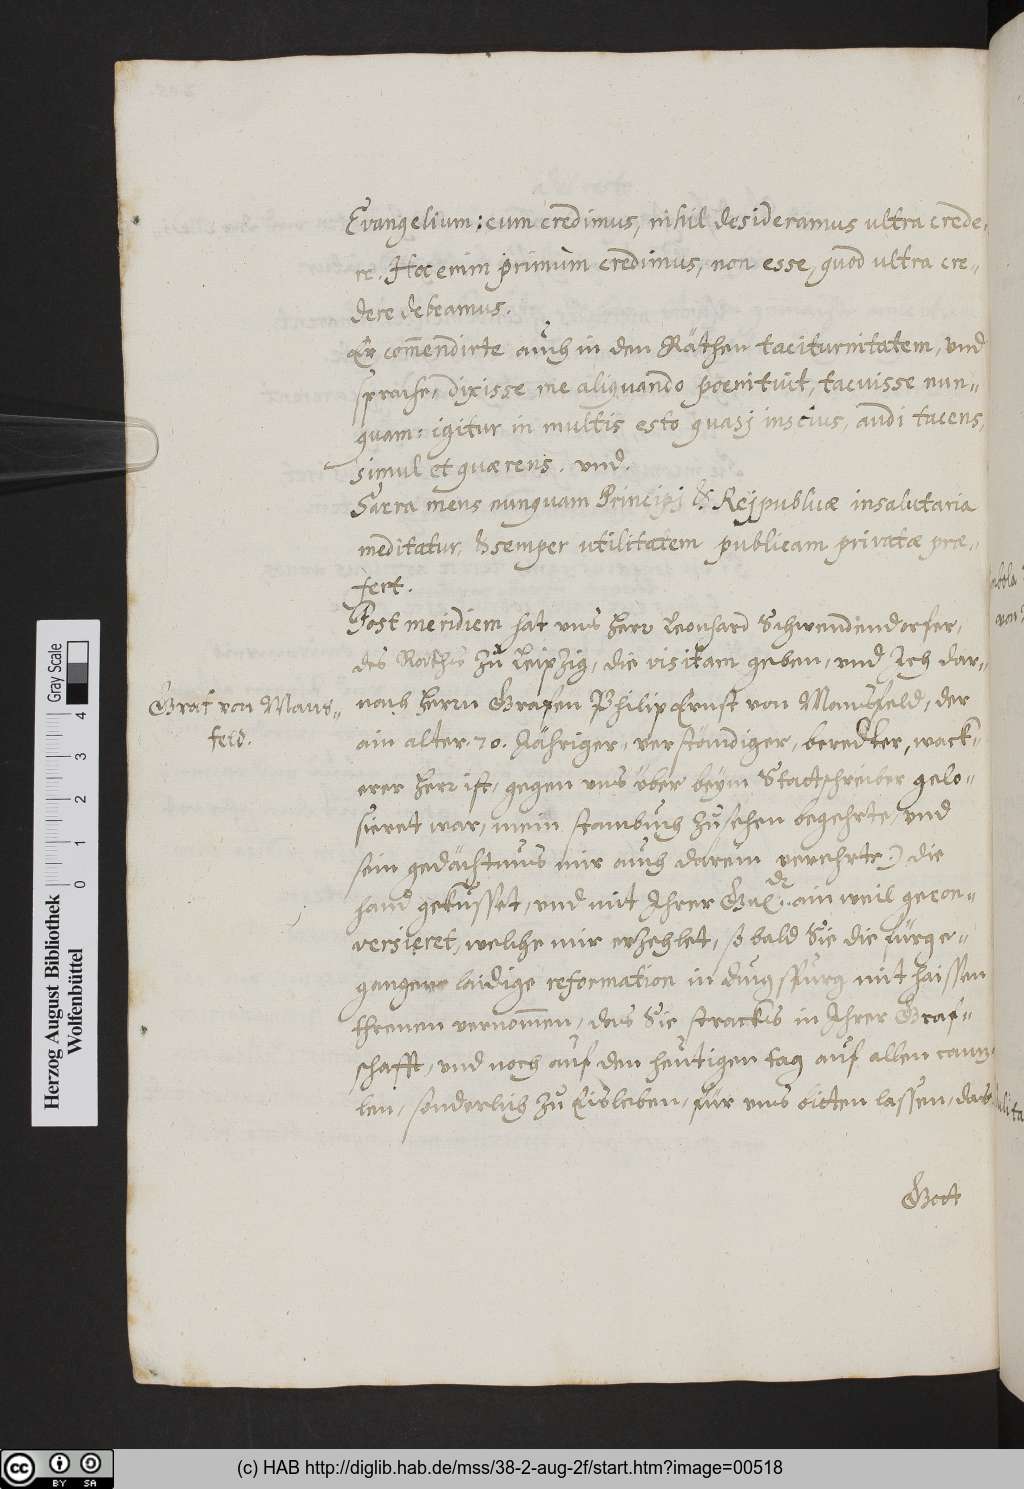 Evangelium: cum credimus, nihil desideramus ultra crede-
re. Hoc enim primùm credimus, non esse, quod ultra cre-
dere debeamus.
Er com̄endirte auch in den Räthen taciturnitatem, und
sprache, dixisse me aliquando poenituit, tacuisse nun-
quam: igitur in multis esto quasj inscius, audi tacens,
simul et quærens. und.
Sacra mens nunquam Principj & Rejpublicæ insalutaria
meditatur, & semper utilitatem publicam privatæ præ-
fert.
Post meridiem hat uns Herr Leonhard Schwendendorfer,
des Raths zu Leipzig, die visitam geben, und Ich dar-
nach Herrn Grafen Philip Ernst von Mansfeld, der
Graf von Mans-
feld.
ain alter 70. Jähriger, verständiger, beredter, wack-
erer Herr ist, gegen uns über beym Stadtschreiber gelo-
sieret war, mein stambuch zu sehen begehrte, und
sein gedächtnus mir auch darein verehrte.) die
hand geküsset, und mit Ihrer Gn. ain weil gecon-
versieret, welche mir erzehlet, so bald Sie die fürge-
gangene laidige reformation in Augspurg mit haissen
threnen vernom̄en, das Sie stracks in Ihrer Graf-
schafft, und noch auf den heutigen tag auf allen canz-
len, sonderlich zu Eisleben, für uns bitten lassen, das
Gott
Herzog August Bibliothek
Wolfenbüttel
Gray Scale
0 1 2 3 4
(c) HAB http://diglib.hab.de/mss/38-2-aug-2f/start.htm?image=00518
cc BY SA